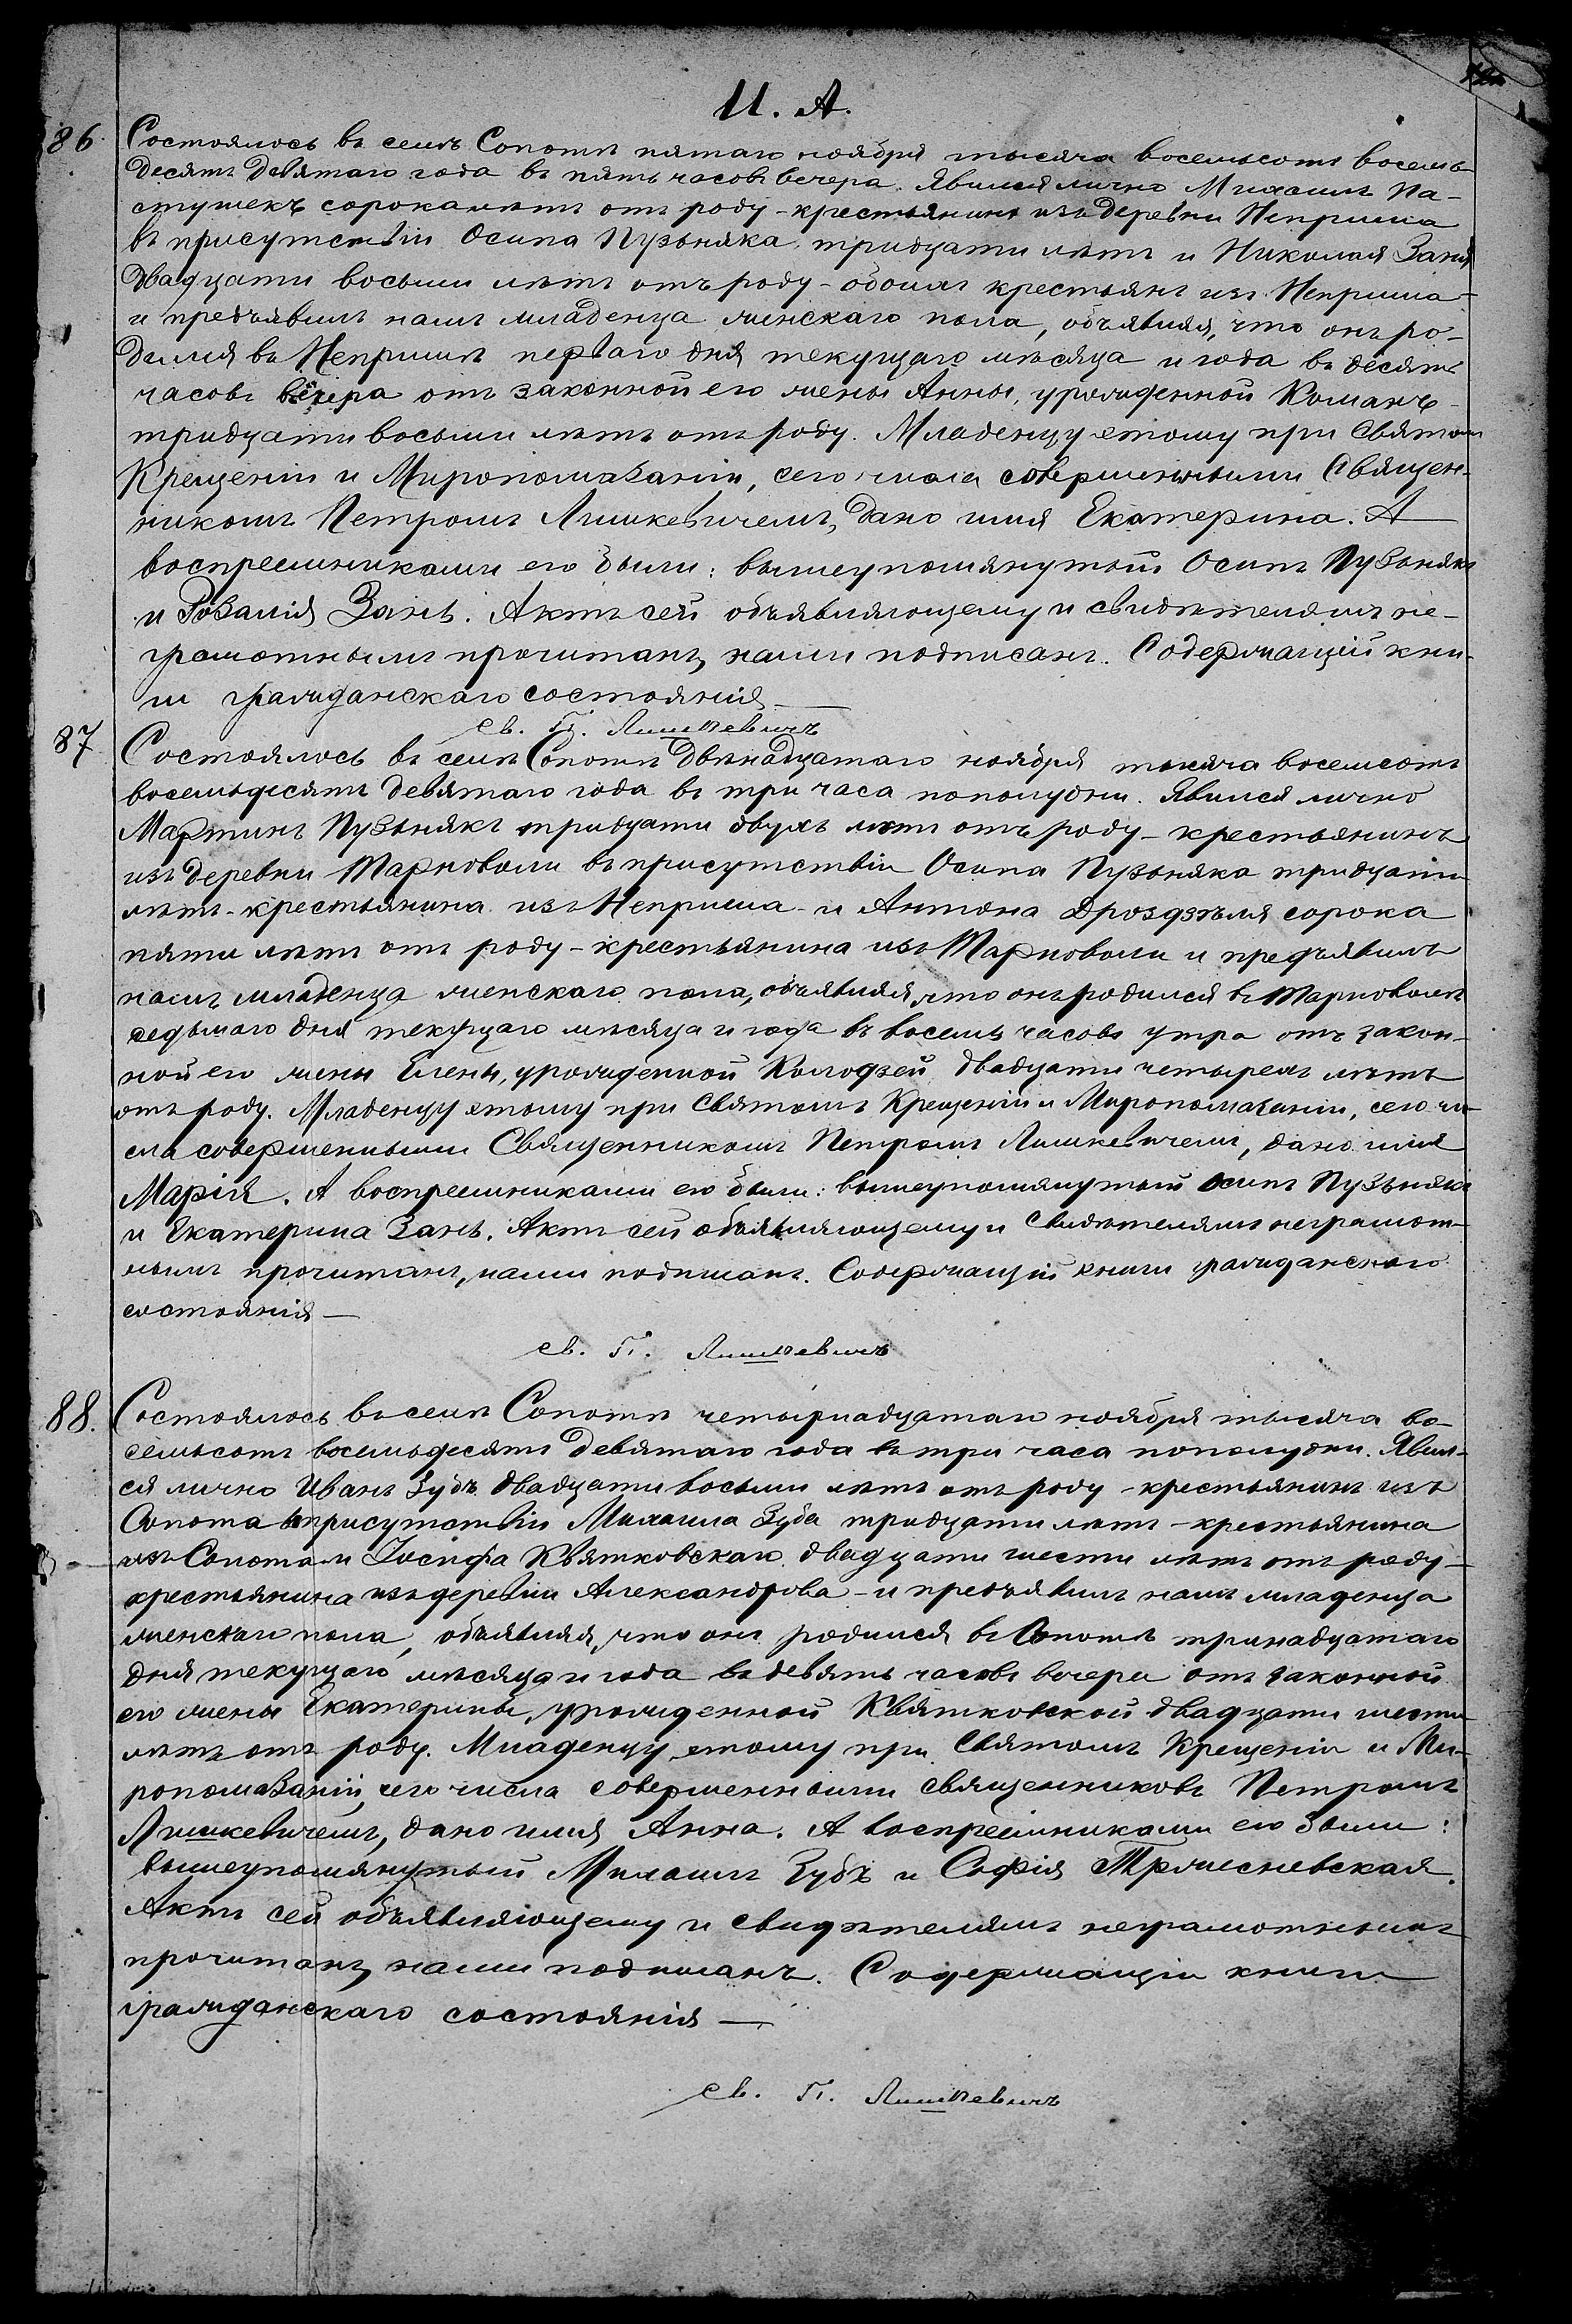 И. А.
86. Состоялось въ селѣ Сопотѣ пятаго ноября тысяча восемьсотъ восемь-
десятъ девятаго года въ пять часовъ вечера. Явился лично Михаилъ Па-
стушекъ сорока лѣтъ отъ роду - крестьянинъ изъ деревни Неприша
въ присутствіи Осипа Пузьняка тридцати лѣтъ и Николая Заня
двадцати восьми лѣтъ отъ роду - обоихъ крестьянъ изъ Неприша -
и предъявилъ намъ младенца женскаго пола, объявляя, что онъ ро-
дился въ Непришѣ перваго дня текущаго мѣсяца и года въ десять
часовъ вечера отъ законной его жены Анны, урожденной Команъ -
тридцати восьми лѣтъ отъ роду. Младенцу етому при Святомъ
Крещеніи и Миропомазаніи, сего числа совершенными Священ-
никомъ Петромъ Лишкевичемъ, дано имя Екатерина. А
воспреемниками его были: вышеупомянутый Осипъ Пузьнякъ
и Розалія Зань. Актъ сей объявляющему и свидѣтелямъ не-
грамотнымъ прочитанъ, нами подписанъ. Содержащій кни-
ги гражданскаго состоянія —
Св. П. Лишкевичъ
87. Состоялось въ селѣ Сопотѣ двѣнадцатаго ноября тысяча восемсотъ
восемьдесятъ девятаго года въ три часа пополудни. Явился лично
Мартинъ Пузьнякъ тридцати двухъ лѣтъ отъ роду - крестьянинъ
изъ деревни Тарноволи въ присутствіи Осипа Пузьняка тридцати
лѣтъ - крестьянина изъ Неприша - и Антона Дроздзѣля сорока
пяти лѣтъ отъ роду - крестьянина изъ Тарноволи и предъявилъ
намъ младенца женскаго пола, объявляя, что онъ родился въ Тарноволѣ
седьмаго дня текущаго мѣсяца и года въ восемь часовъ утра отъ закон-
ной его жены Елены, урожденной Колодзей, двадцати четырехъ лѣтъ
отъ роду. Младенцу этому при Святомъ Крещеніи и Миропомазаніи, сего чи-
сла совершенными Священникомъ Петромъ Лишкевичемъ, дано имя
Марія. А воспреемниками его были: вышеупомянутый Осипъ Пузьнякъ
и Екатерина Зань. Актъ сей объявляющему и свидѣтелямъ неграмот-
нымъ прочитанъ, нами подписанъ. Содержащій книги гражданскаго
состоянія —
Св. П. Лишкевичъ
88. Состоялось въ селѣ Сопотѣ четырнадцатаго ноября тысяча во-
семьсотъ восемьдесятъ девятаго года въ три часа пополудни. Явил-
ся лично Иванъ Зубъ двадцати восьми лѣтъ отъ роду - крестьянинъ изъ
Сопота въ присутствіи Михаила Зуба тридцати лѣтъ - крестьянина
изъ Сопота и Іосифа Квятковскаго двадцати шести лѣтъ отъ роду -
крестьянина изъ деревни Александрова - и предъявилъ намъ младенца
женскаго пола, объявляя, что онъ родился въ Сопотѣ тринадцатаго
дня текущаго мѣсяца и года въ девять часовъ вечера отъ законной
его жены Екатерины, урожденной Квятковской двадцати шести
лѣтъ отъ роду. Младенцу этому при Святомъ Крещеніи и Ми-
ропомазаніи, сего числа совершенными священниковъ Петромъ
Лишкевичемъ, дано имя Анна. А воспреемниками его были:
вышеупомянутый Михаилъ Зубъ и Софія Тржесневская.
Актъ сей объявляющему и свидѣтелямъ неграмотнымъ
прочитанъ, нами подписанъ. Содержащій книги
гражданскаго состоянія —
Св. П. Лишкевичъ